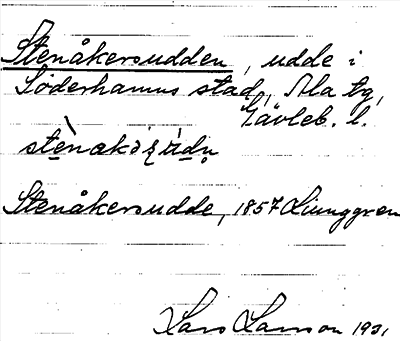 Stenåkersudden, udde i
Söderhamns stad, Ala tg,
Gävleb. l.
Stenåkersudde, 1857 Ljunggren
Lars Larsson 1931